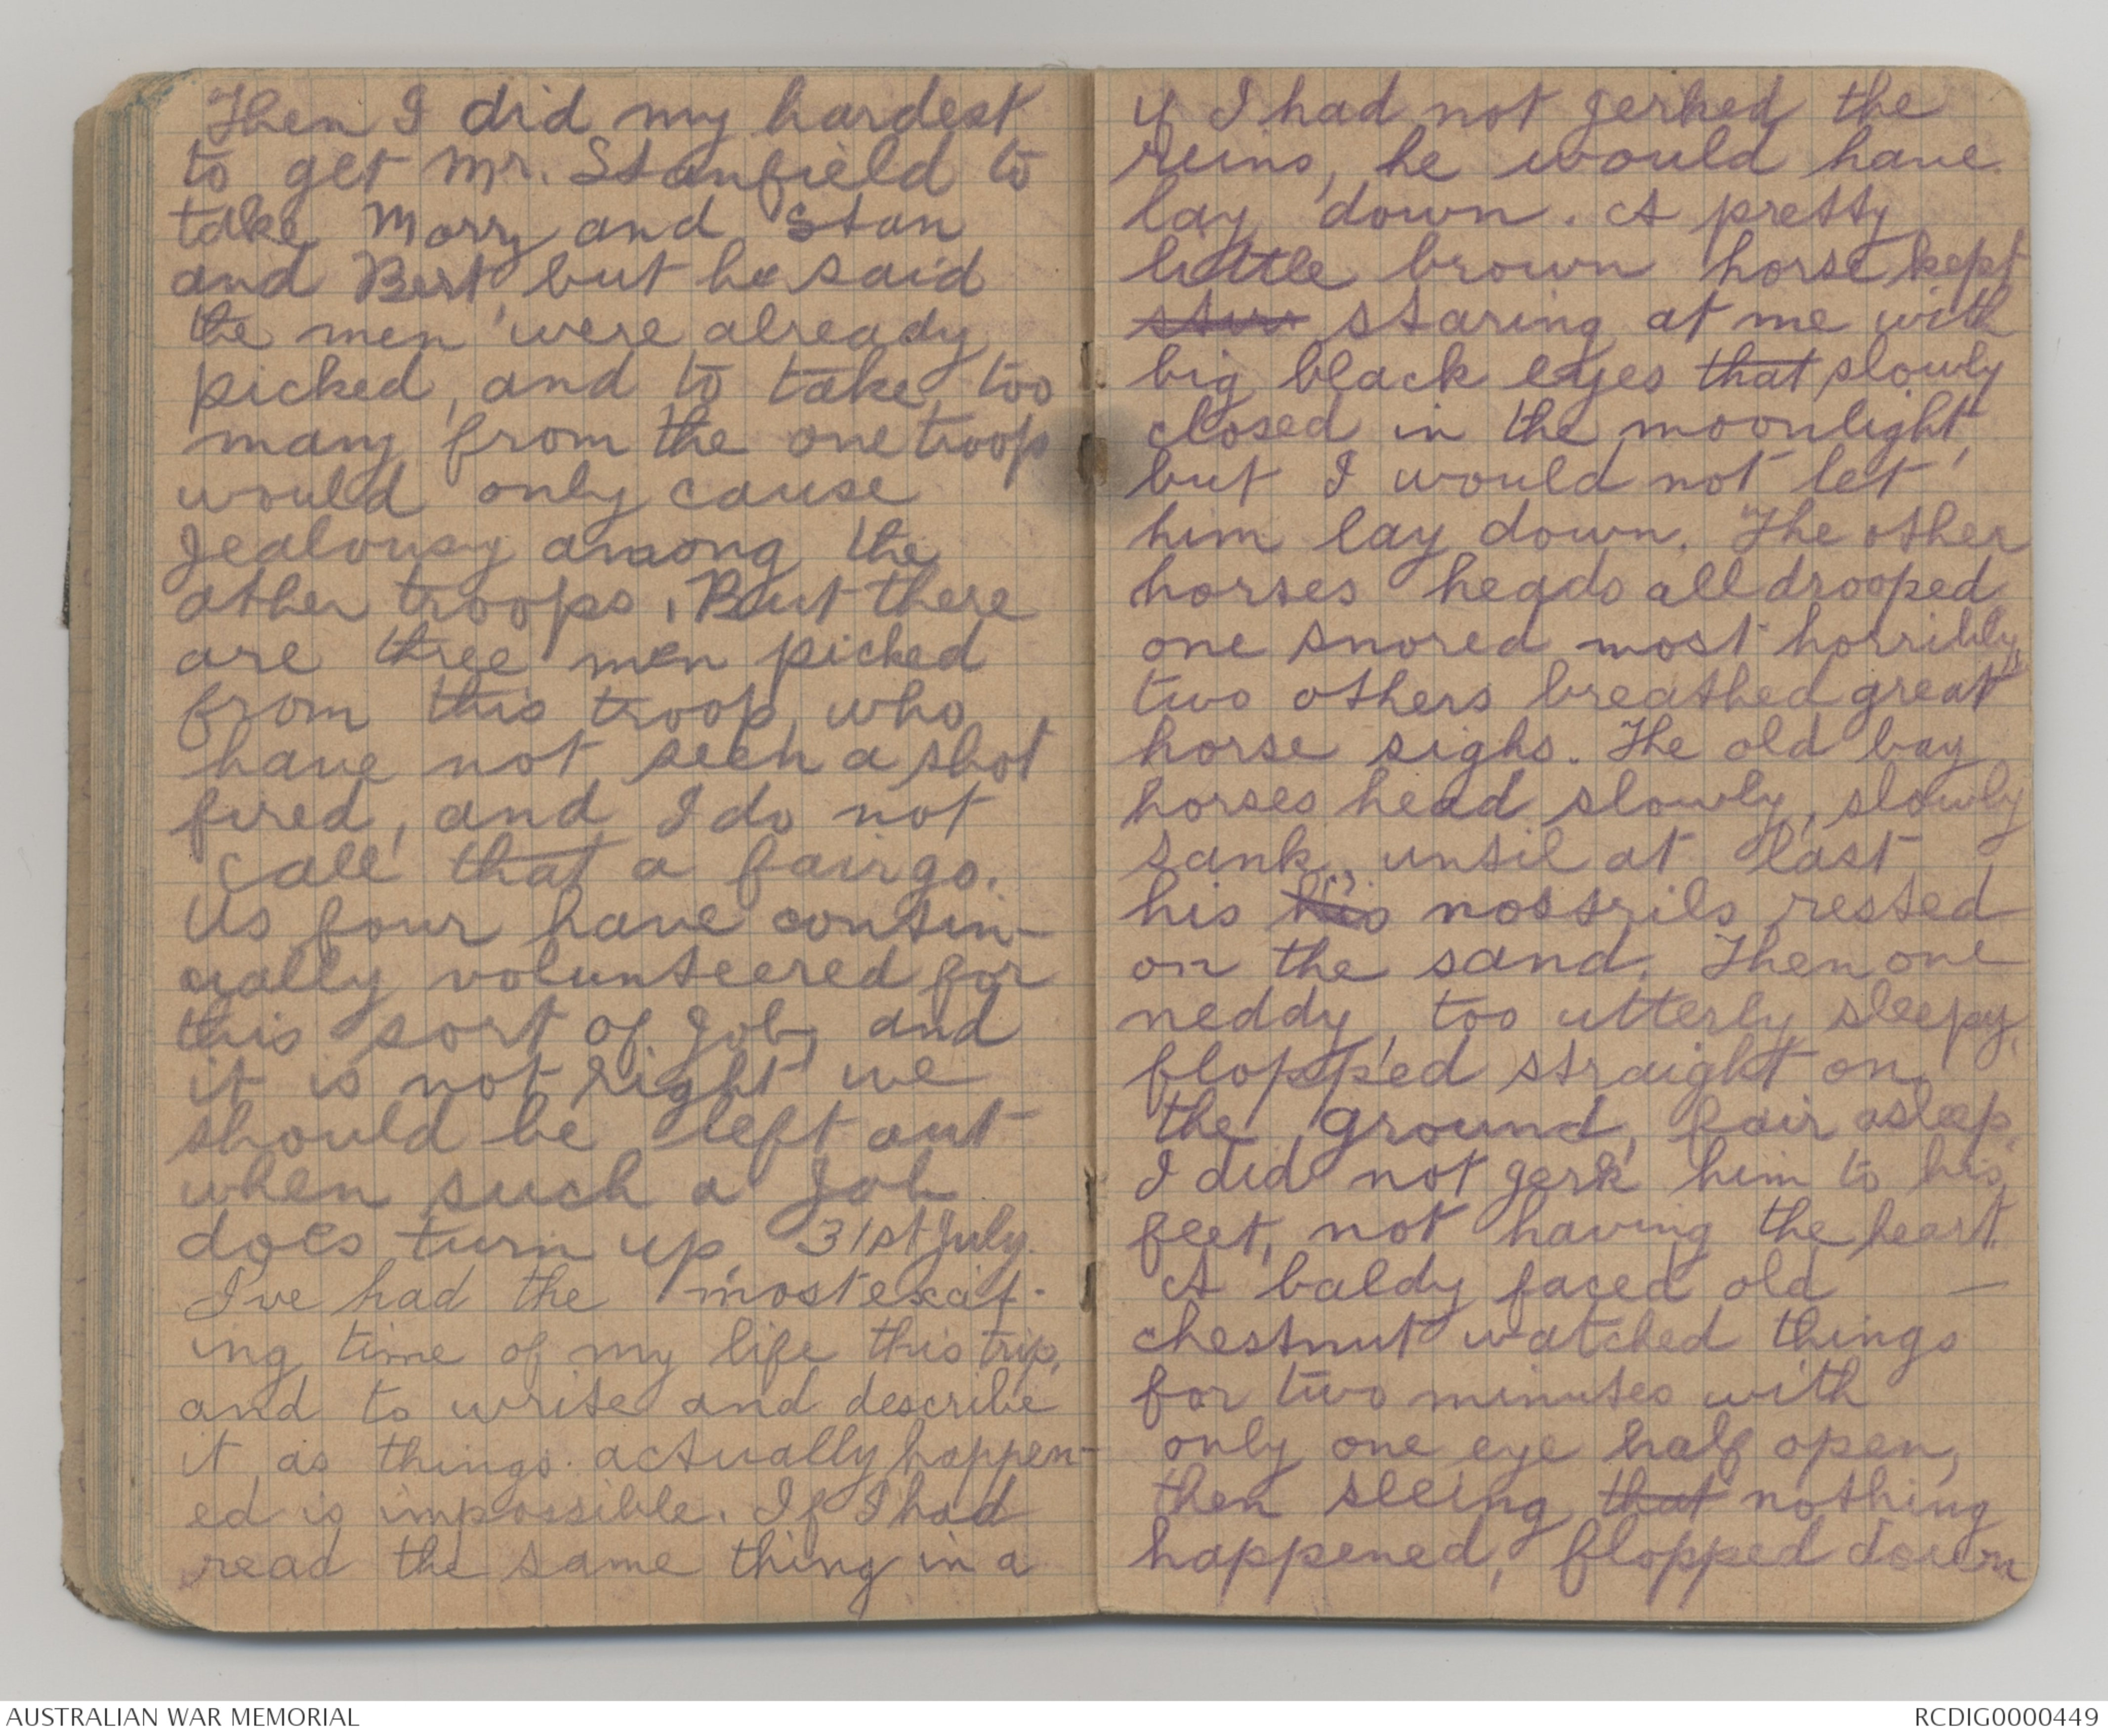 Then I did my hardest
to get Mr. Stanfield to
take Morry and Stan
and Bert, but he said
the men were already
picked, and to take too
many from the one troop
would only cause
Jealousy among the
other troops. But there
are three men picked
from this troop, who
have not seen a shot
fired, and I do not
call that a fair go.
Us four have contin-
ually volunteered for
this sort of Job, and
it is not right we
should be left out
when such a Job
does turn up. 31st July.
I've had the most excit-
ing time of my life this trip,
and to write and describe
it as things actually happen-
ed is impossible. If I had
read the same thing in a
if I had not jerked the
reins, he would have
lay down. A pretty
little brown horse kept
stars staring at me with
big black eyes that slowly
closed in the moonlight,
but I would not let
him lay down. The other
horses heads all drooped
one snored most horribly,
two others breathed great
horse sighs. The old bay
horses head slowly, slowly
sank, until at last
his his nostrils rested
on the sand. Then one
neddy, too utterly sleepy,
flopped straight on
the ground, fair asleep.
I did not jerk him to his
feet, not having the heart.
A baldy faced old —
chestnut watched things
for two minutes with
only one eye half open,
then seeing that nothing
happened, flopped down
AUSTRALIAN WAR MEMORIAL
RCDIG0000449